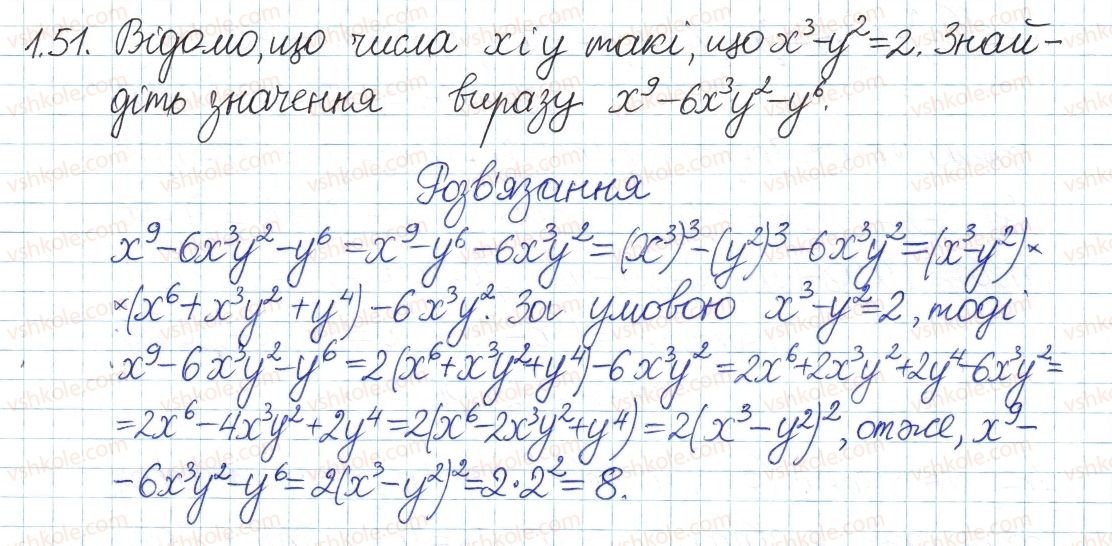 1.51. Відомо, що числа x і y такі, що x³-y²=2. Знай-
діть значення виразу x⁹-6x³y²-y⁶.
Розв'язання
x⁹-6x³y²-y⁶=x⁹-y⁶-6x³y²=(x³)³-(y²)³-6x³y²=(x³-y²)×
×(x⁶+x³y²+y⁴)-6x³y². За умовою x³-y²=2, тоді
x⁹-6x³y²-y⁶=2(x⁶+x³y²+y⁴)-6x³y²=2x⁶+2x³y²+2y⁴-6x³y²=
=2x⁶-4x³y²+2y⁴=2(x⁶-2x³y²+y⁴)=2(x³-y²)², отже, x⁹-
-6x³y²-y⁶=2(x³-y²)²=2·2²=8.